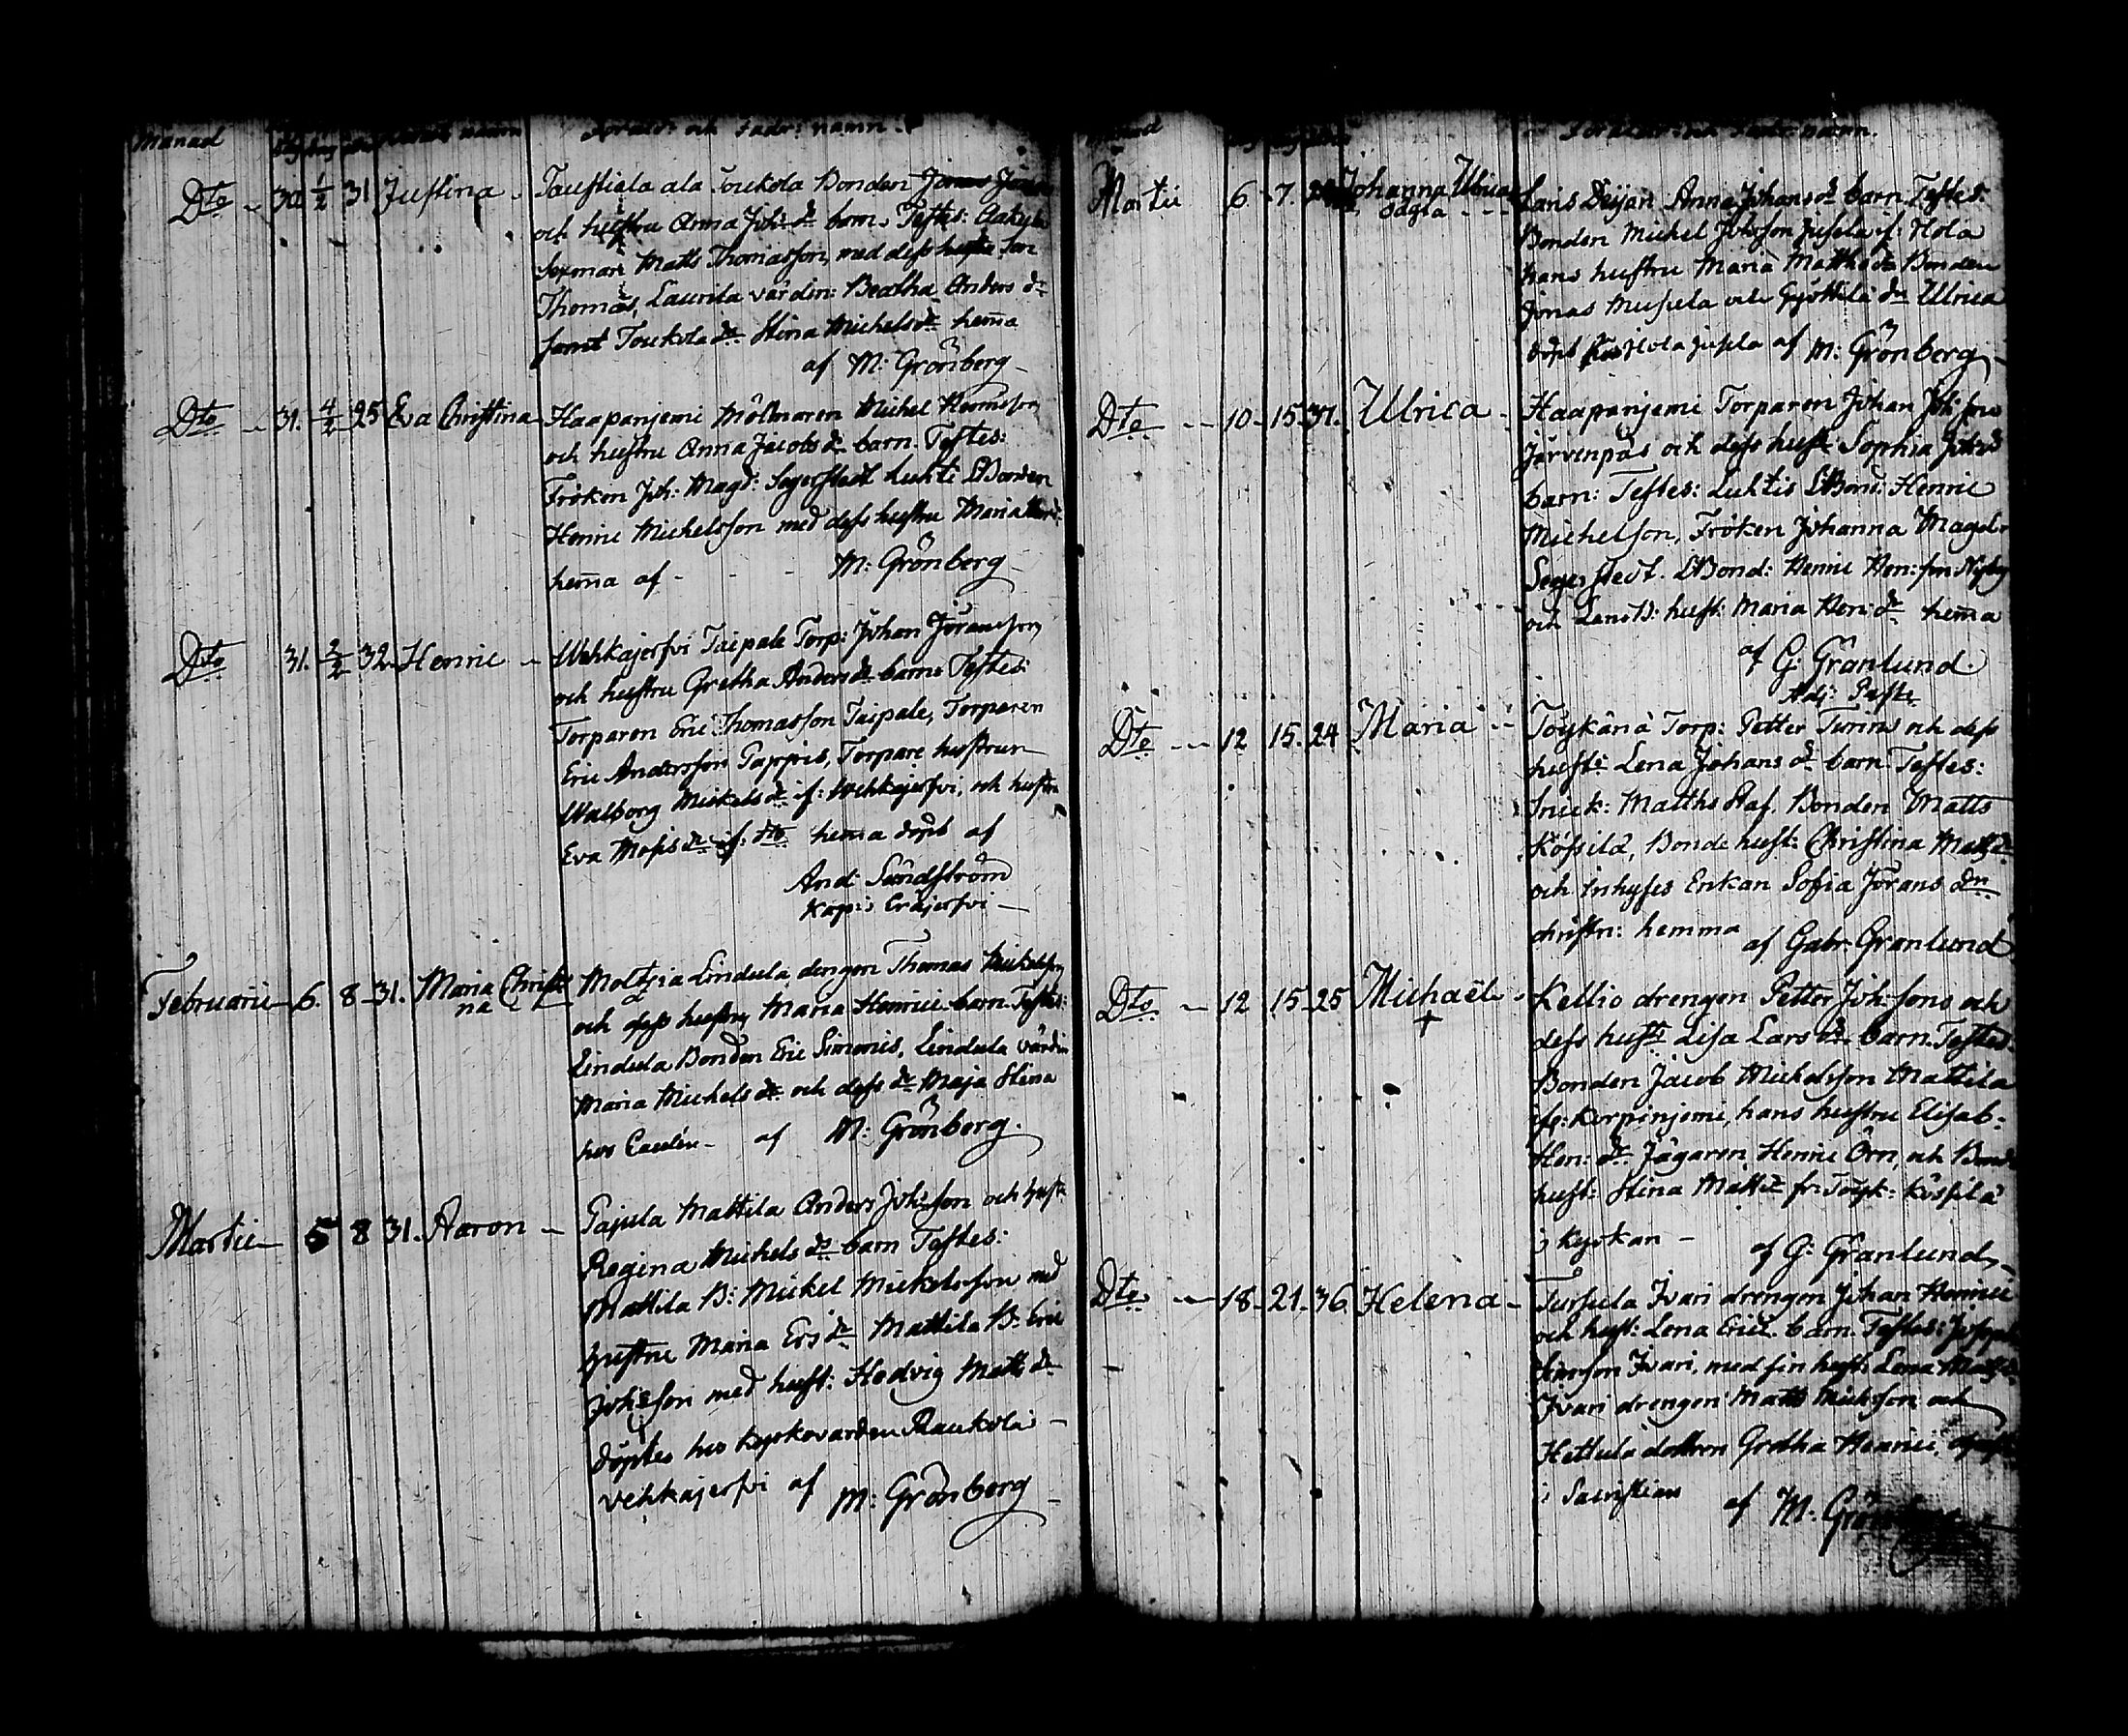 Månad
namn
Föräldr: och Fadr: namn.
Dto 30 1/2 31 Justina Taustiala ala Toukola Bonden
och hustru Anna Joh: dr barn. Testes:
Sexman Matts Thomasson, med dess son
Thomas, Laurila värdin: Beatha Anders dr
samt Toukola dr Stina Michels dr hema
af M: Grönberg
Dto 31. 4/2 25 Eva Christina Haapanjemi Mölnaren Michel
och hustru Anna Jacobs dr barn. Testes:
Fröken Joh: Magd: Segerstedt Luhti LBonden
Henric Michelsson med dess hustru Maria
hema af - - - M: Grönberg
Dto 31. 2/2 32 Henric Wehkajerfvi Taipale Torp: Johan Göransson
och hustru Gretha Anders dr barn Testes:
Torparen Eric Thomasson Taipale, Torparen
Eric Andersson Pappis, Torpare hustrun
Walborg Mickels dr if: Wehkajerfvi, och hustru
Eva Mosis dr if: dto hema döpt af
And: Sundström
Kap: i Eräjerfvi
Februarii 6. 8 31. Maria Christi
na
Moltzia Lindula drengen Thomas Mickelsson
och dess hustru Maria Henrici barn. Testes:
Lindula Bonden Eric Simonis, Lindula värdin
Maria Michels dr och dess dr Maja Stina
hos af M: Grönberg.
Martii 5 8 31. Aaron Pajula Mattila Anders Johsson och hust:
Regina Michels dr barn Testes:
Mattila B: Mickel Mickelsson med
hustru Maria Ers dr Mattila B: Eric
Johsson med hust: Hedvig Matts dr
döptes hos Kyrkovarden Raukola
Vehkajerfvi af M: Grönberg
Föräldr: och Fadr: namn.
Martii 6. 7. Johanna Ulrica
oägta
Anna Johans dr barn Testes:
Bonden Michel Johsson Jusela if: Hola
hans hustru Maria Matths dr Bonden
Jonas Musela och dr Ulrica
döpt Hola Jusela af M: Grönberg
Dto 10. 15. 37. Ulrica Haapanjemi Torparen Johan Johsson
Järvenpää och dess hust: Sophia Johs d
barn: Testes: Luhtis LBond: Henric
Michelson, Fröken Johanna Magdl:
Segerstedt. LBond: Henric Hen:son Nyby
och hust: Maria Hen: dr hema
af G: Granlund
Adj: Past:
Dto 12 15. 24 Maria Töykänä Torp: Petter Turin och dess
hust: Lena Johans dr barn Testes:
Matths Staf. Bonden Matts
Kössilä, Bonde hust: Christina Matts dr
och Inhyses Enkan Sofia Jörans dn
christn: hemma af Gabr: Granlund
Dto 12 15 25 Michaël
+
Kellio drengen Petter Joh:son och
dess hust: Lisa Lars dr barn. Testes
Bonden Jacob Michelsson Mattila
if: Korpinjemi, hans hustru Elisab:
Hen: dr Jägaren Henric Örn, och Bond
hust: Stina Matts dr fr: Töyk: Kössilä
i Kyrkan - af G: Granlund
Dto 18. 21. 36 Helena Tursula Ivari drengen Johan Henrici
och hust: Lena Erici barn. Testes:
Ivari, med sin hust: Lena Matts dr
Ivari drengen Matts Mickson och
Hettula dottren Gretha Henrici,
i Sacristian af M: Grönberg